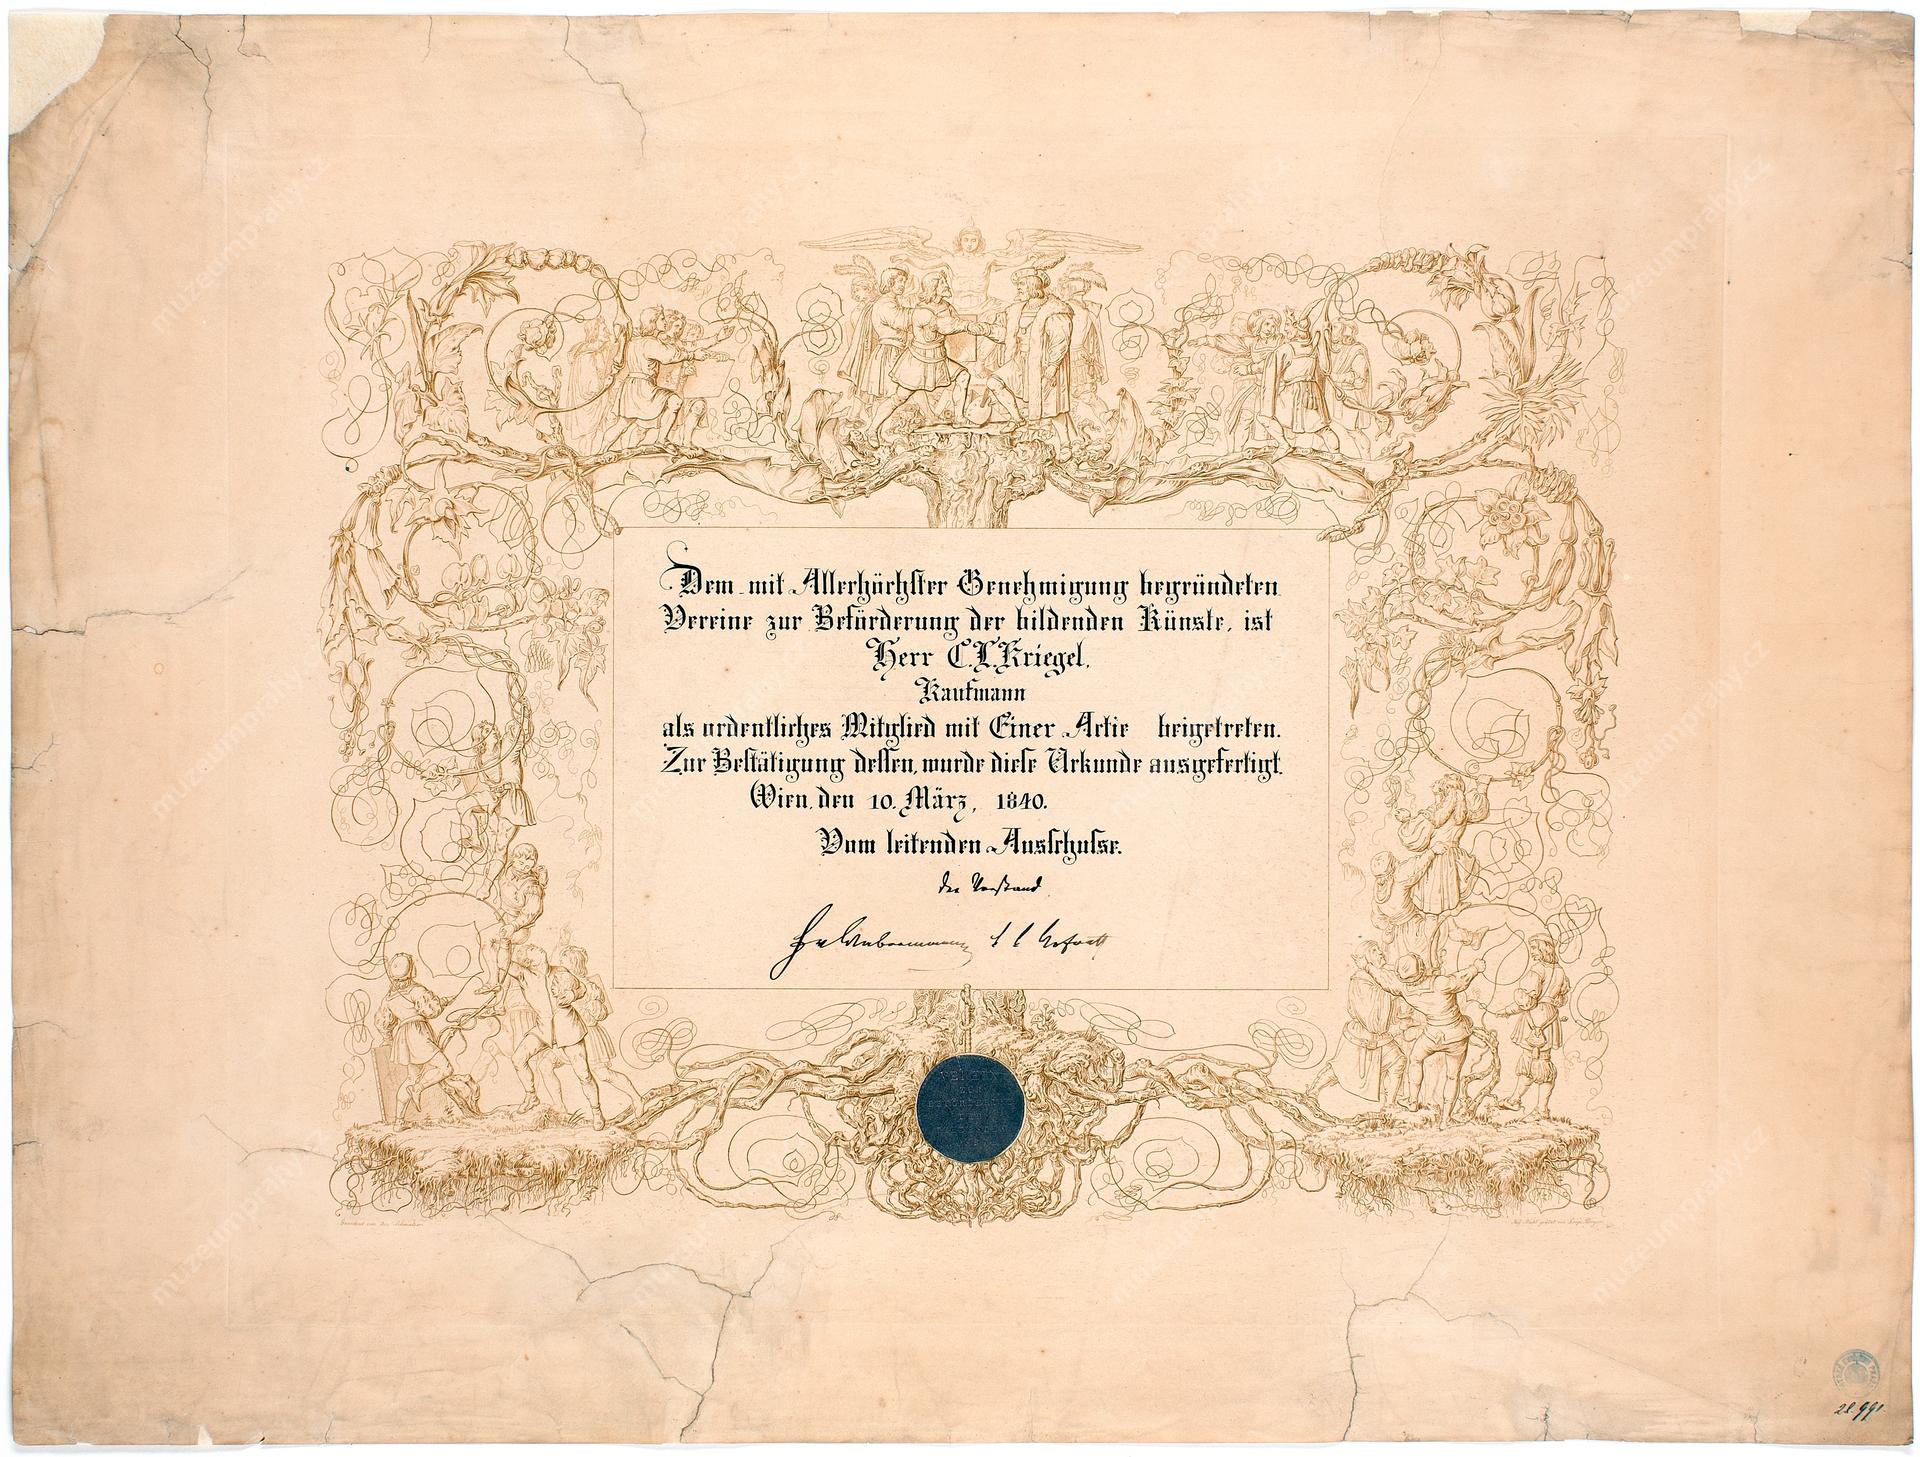 Dem mit Allerhöchster Genehmigung begründeten
Vereine zur Beförderung der bildenden Künste, ist
Herr C. L. Kriegel,
Kaufmann
als ordentliches Mitglied mit Einer Actie beigetreten.
Zur Bestätigung dessen, wurde diese Urkunde ausgefertigt.
Wien, den 10. März, 1840.
Vom leitenden Ausschusse.
Der Vorstand
28.991
muzeumprahy.cz